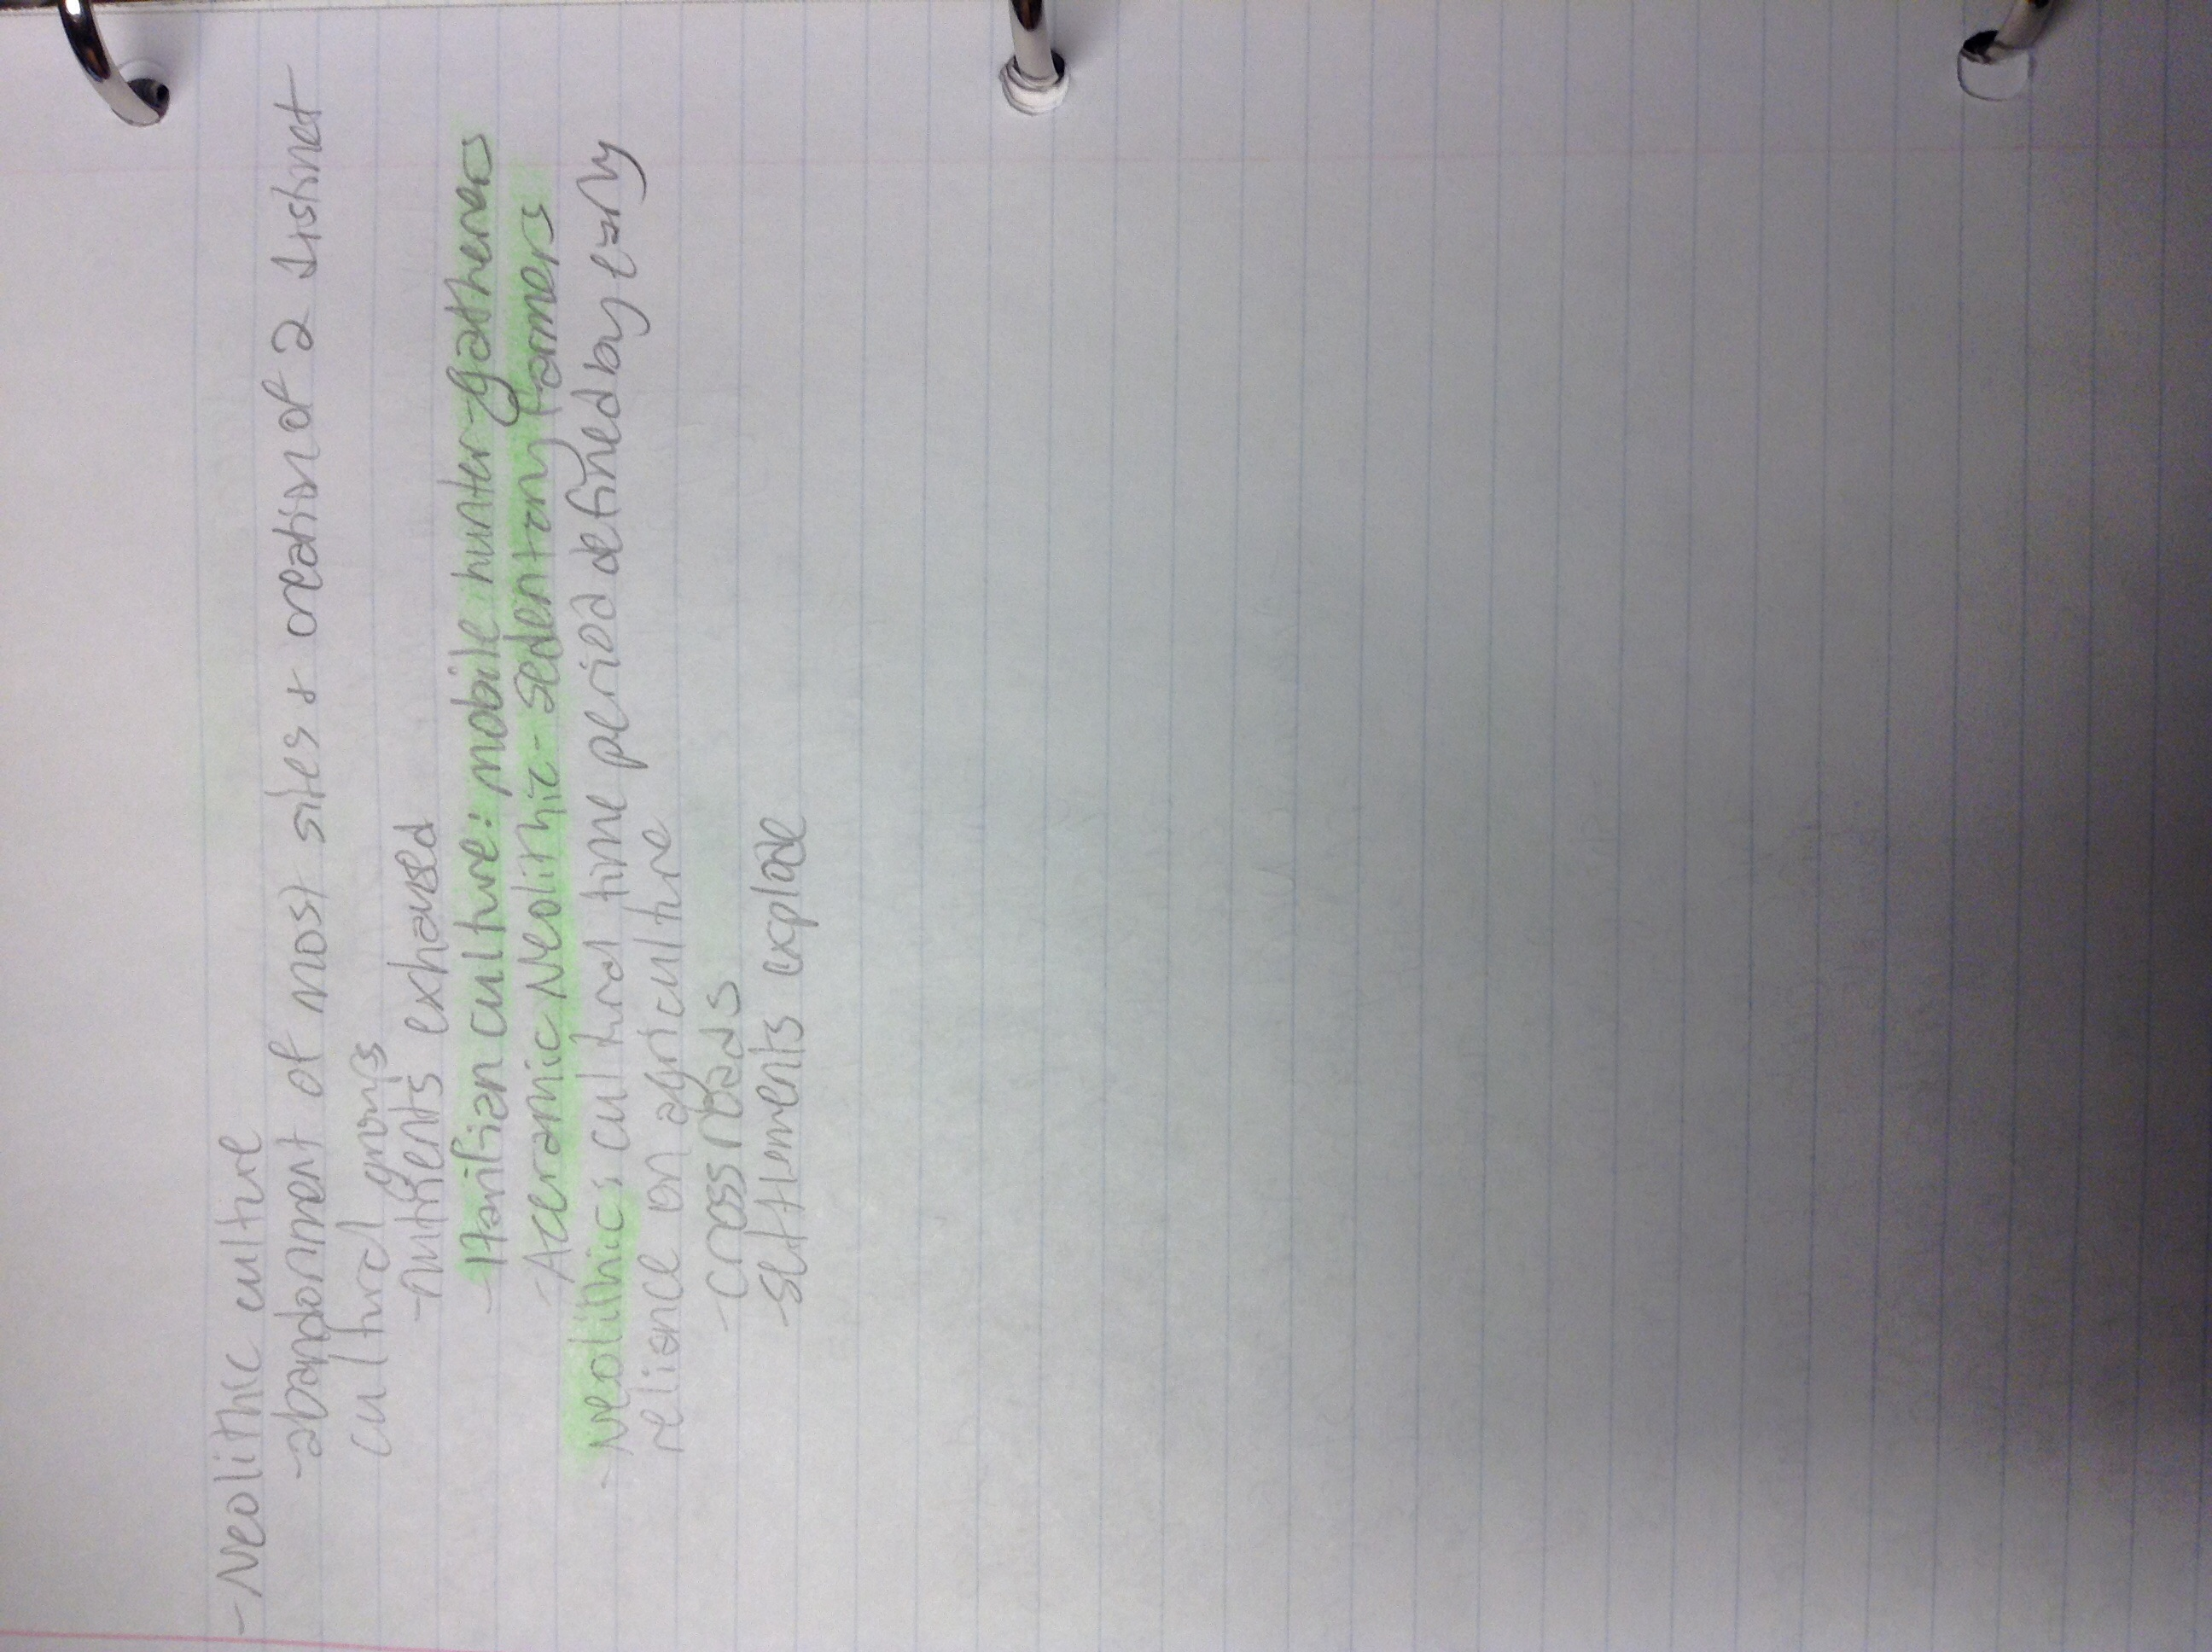 - Neolithic culture
- abandonment of most sites + creation of 2 distinct
cultural groups
- nutrients exhausted
- Harifian culture: mobile hunter-gatherers
- Aceramic Neolithic - sedentary farmers
- Neolithic: cultural time period defined by early
reliance on agriculture
- cross roads
- settlements explode